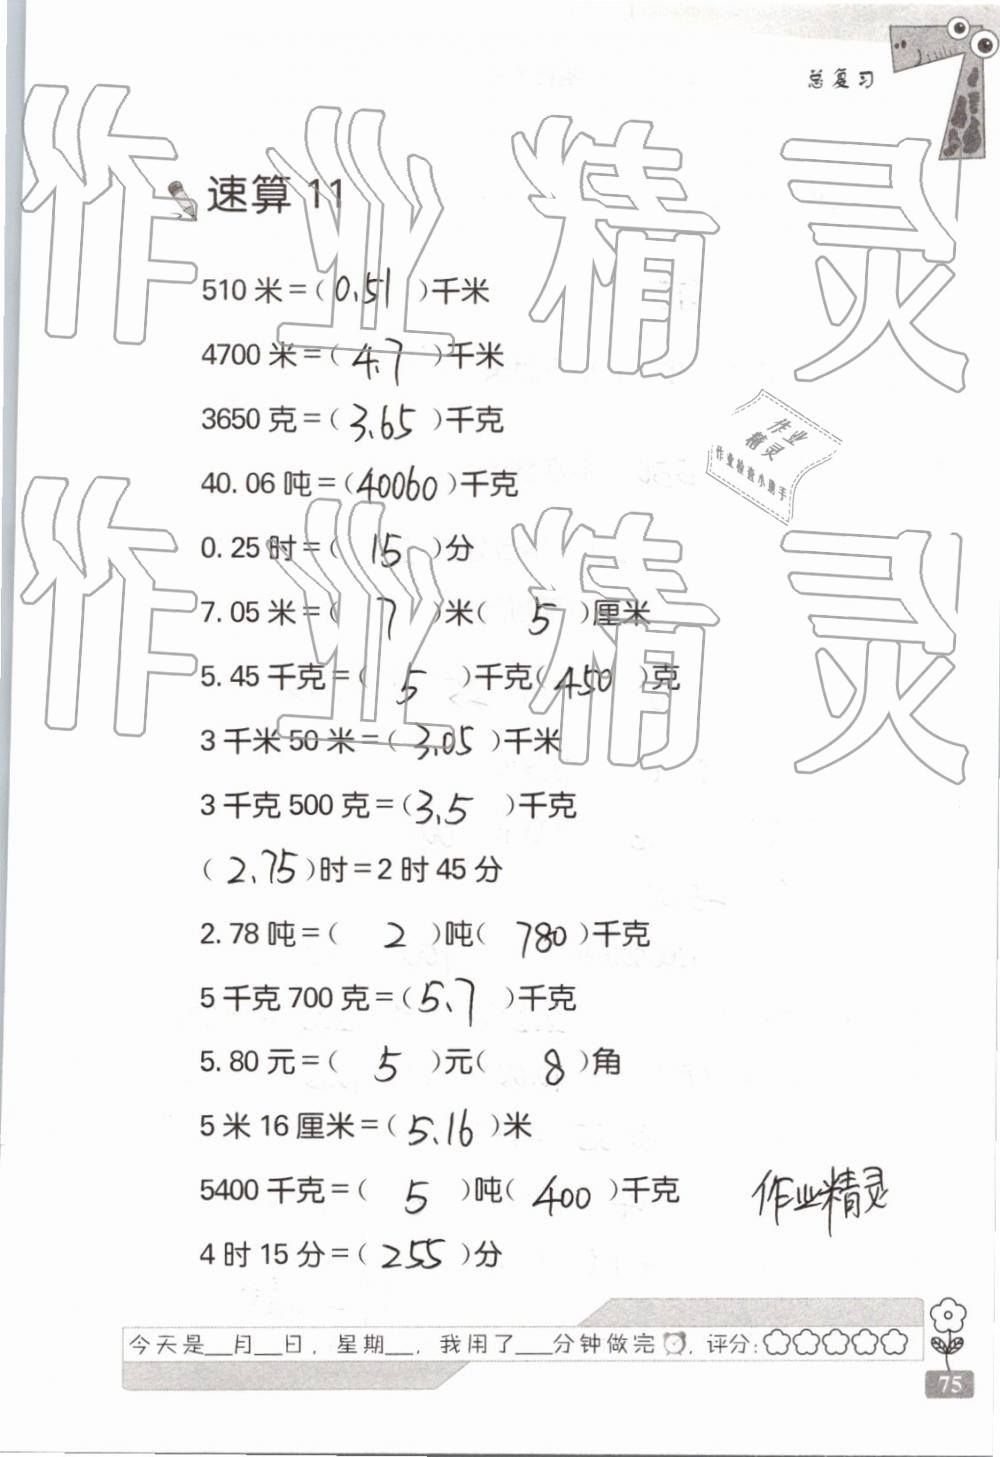 总复习
作业精灵
速算 11
510 米=( 0.51 )千米
4700 米=( 4.7 )千米
3650 克=( 3.65 )千克
作业
精灵
作业检查小助手
40.06 吨=( 40060 )千克
作业精灵
0.25 时=( 15 )分
7.05 米=( 7 )米( 5 )厘米
5.45 千克=( 5 )千克( 450 )克
3 千米 50 米=( 3.05 )千米
3 千克 500 克=( 3.5 )千克
( 2.75 )时=2 时 45 分
2.78 吨=( 2 )吨( 780 )千克
5 千克 700 克=( 5.7 )千克
5.80 元=( 5 )元( 8 )角
5 米 16 厘米=( 5.16 )米
5400 千克=( 5 )吨( 400 )千克
作业精灵
4 时 15 分=( 255 )分
今天是__月__日，星期__，我用了___分钟做完，评分:
75